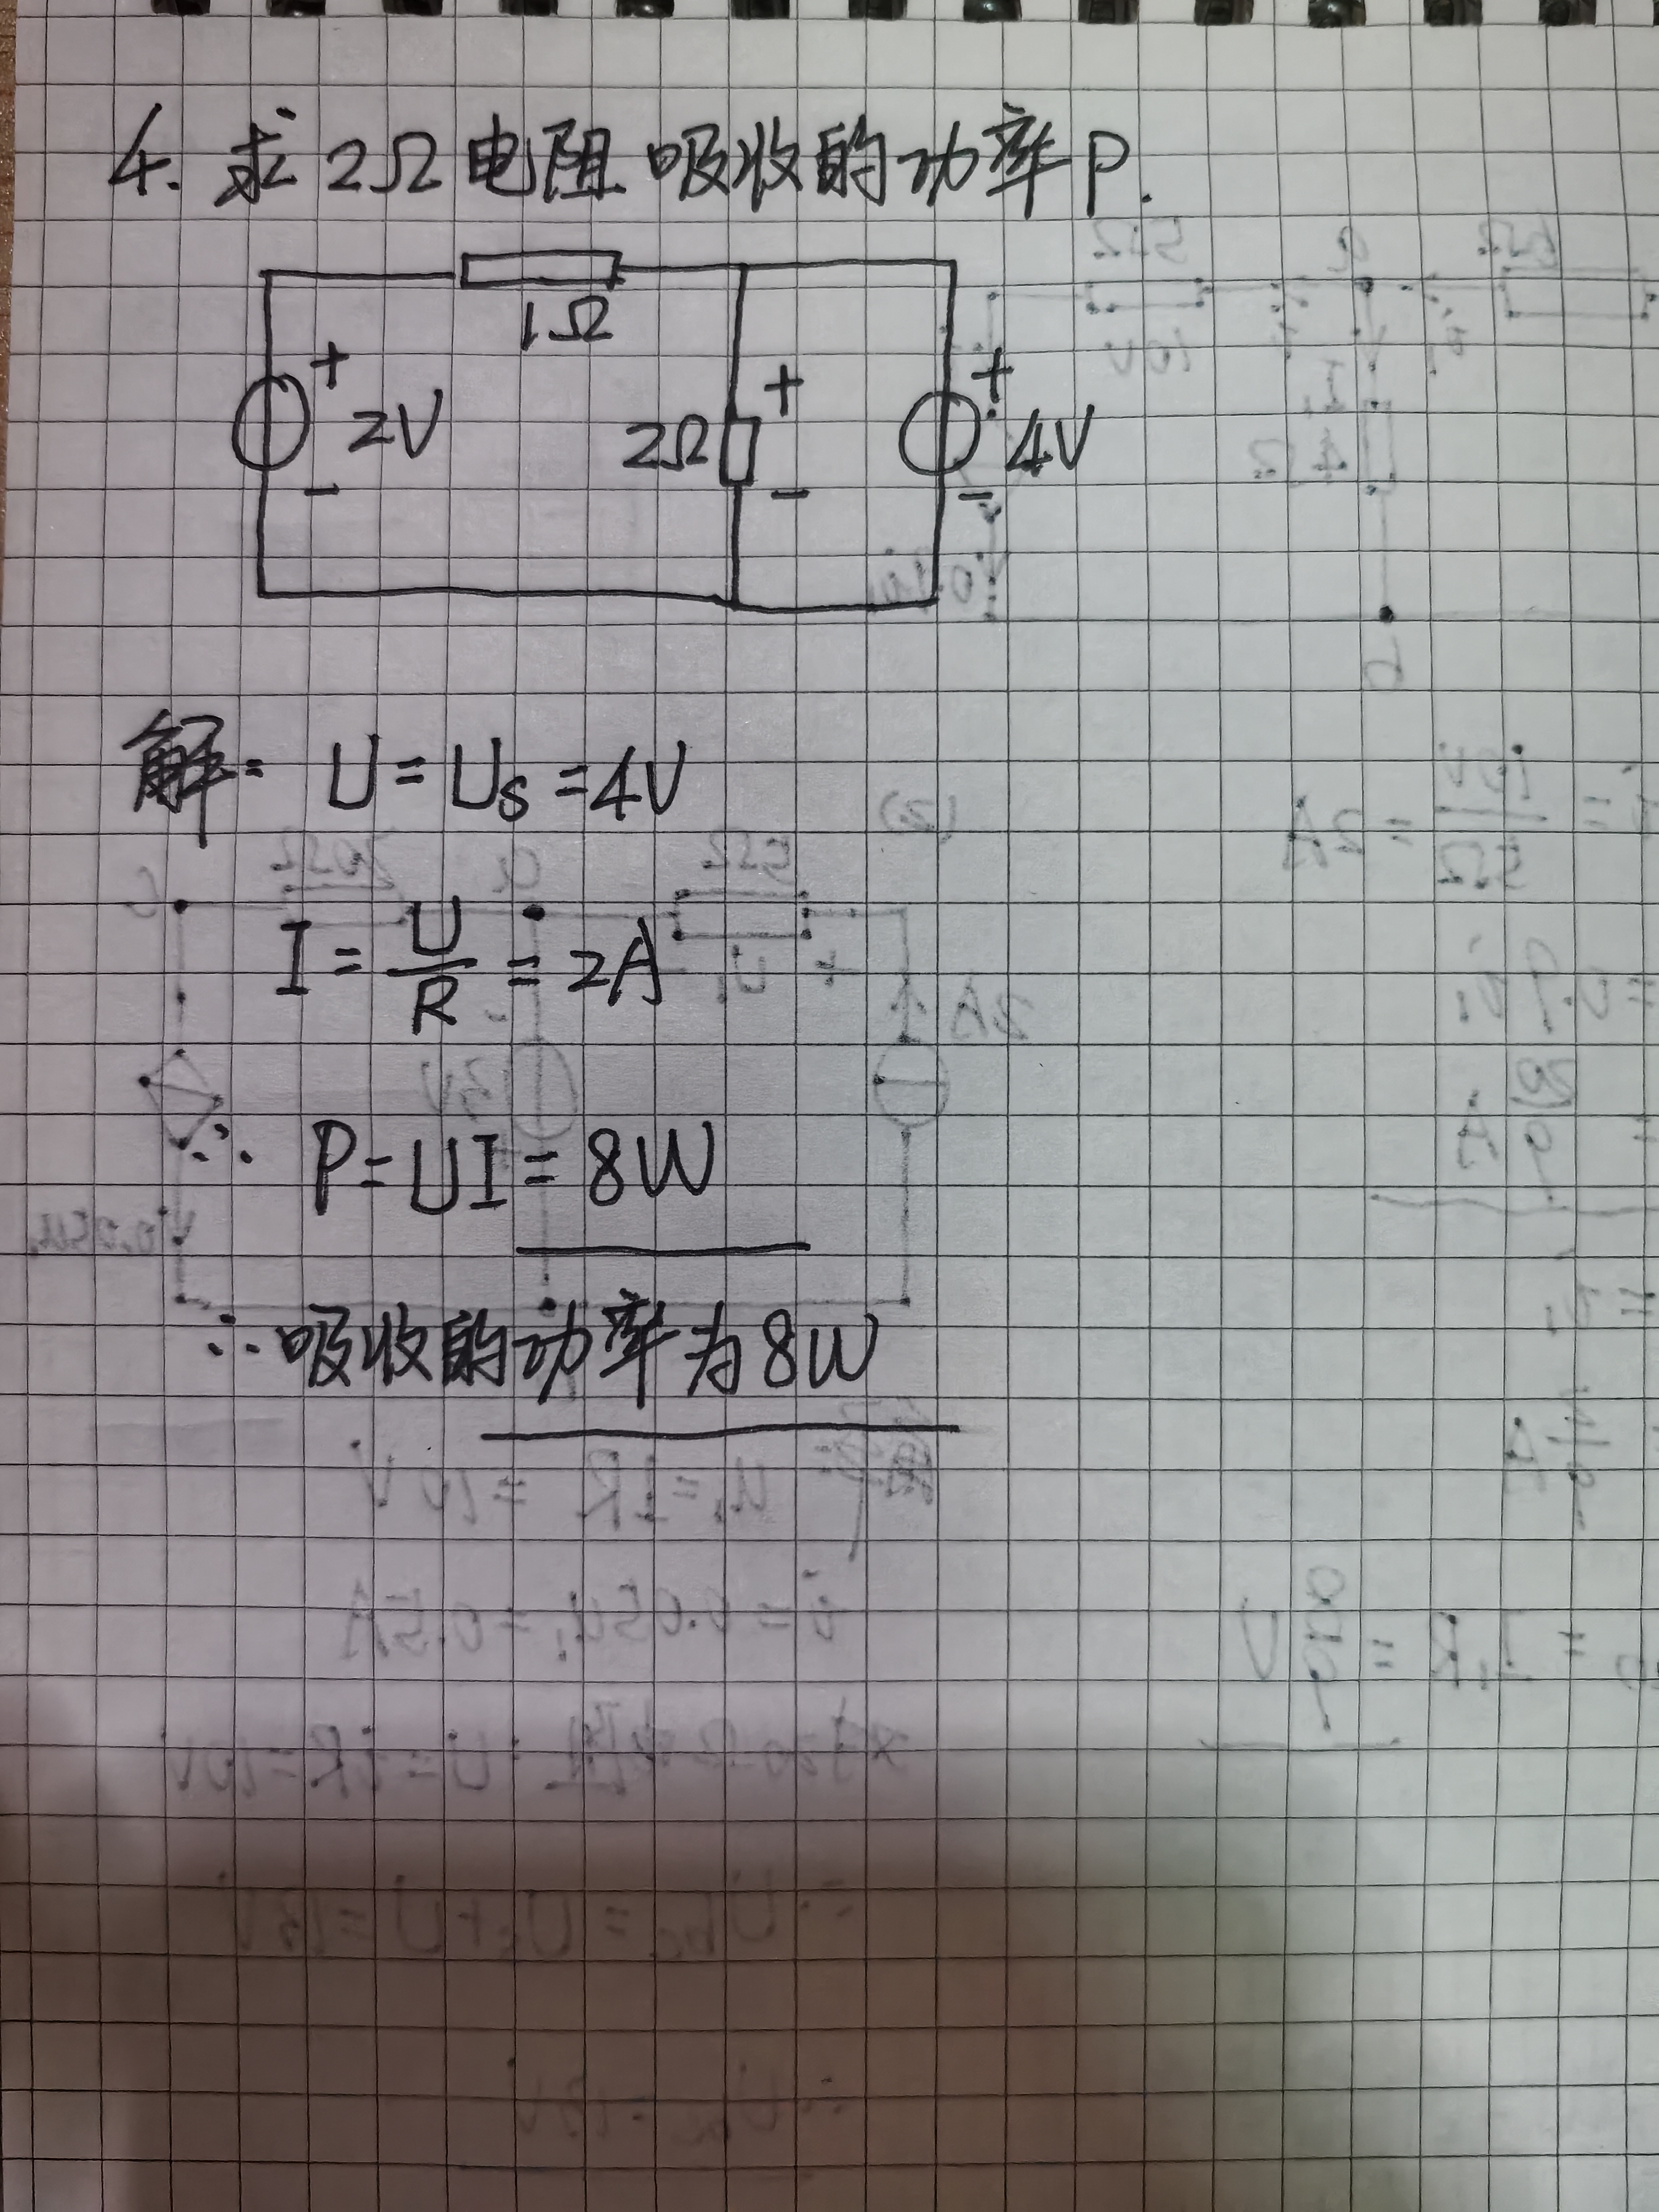 4. 求2Ω电阻吸收的功率P.
1Ω
+ + +
2V 2Ω 4V
- - -
解: U=Us=4V
I=U/R=2A
∴ P=UI=8W
∴吸收的功率为8W